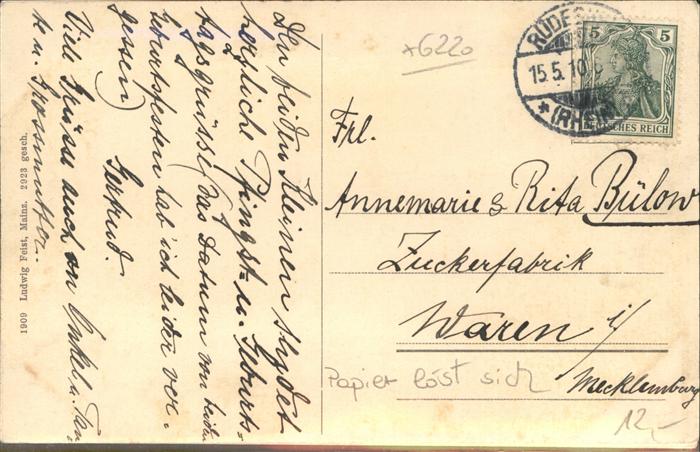 Den beiden Kleinen sendet
herzliche Pfingst- u. Geburts-
tagsgrüsse (das Datum von beiden
Geburtstagen hab ich leider ver-
gessen) Gertrud.
Viele Grüsse auch an Onkel u. Tan-
te u. Grossmutter.
1909 Ludwig Feist, Mainz. 2923 gesch.
*6220
RÜDESH
15.5.10
*(RHEIN)
5 5
DEUTSCHES REICH
Frl.
Annemarie & Rita Bülow
Zuckerfabrik
Waren i/
Mecklemburg
Papier löst sich
12,-